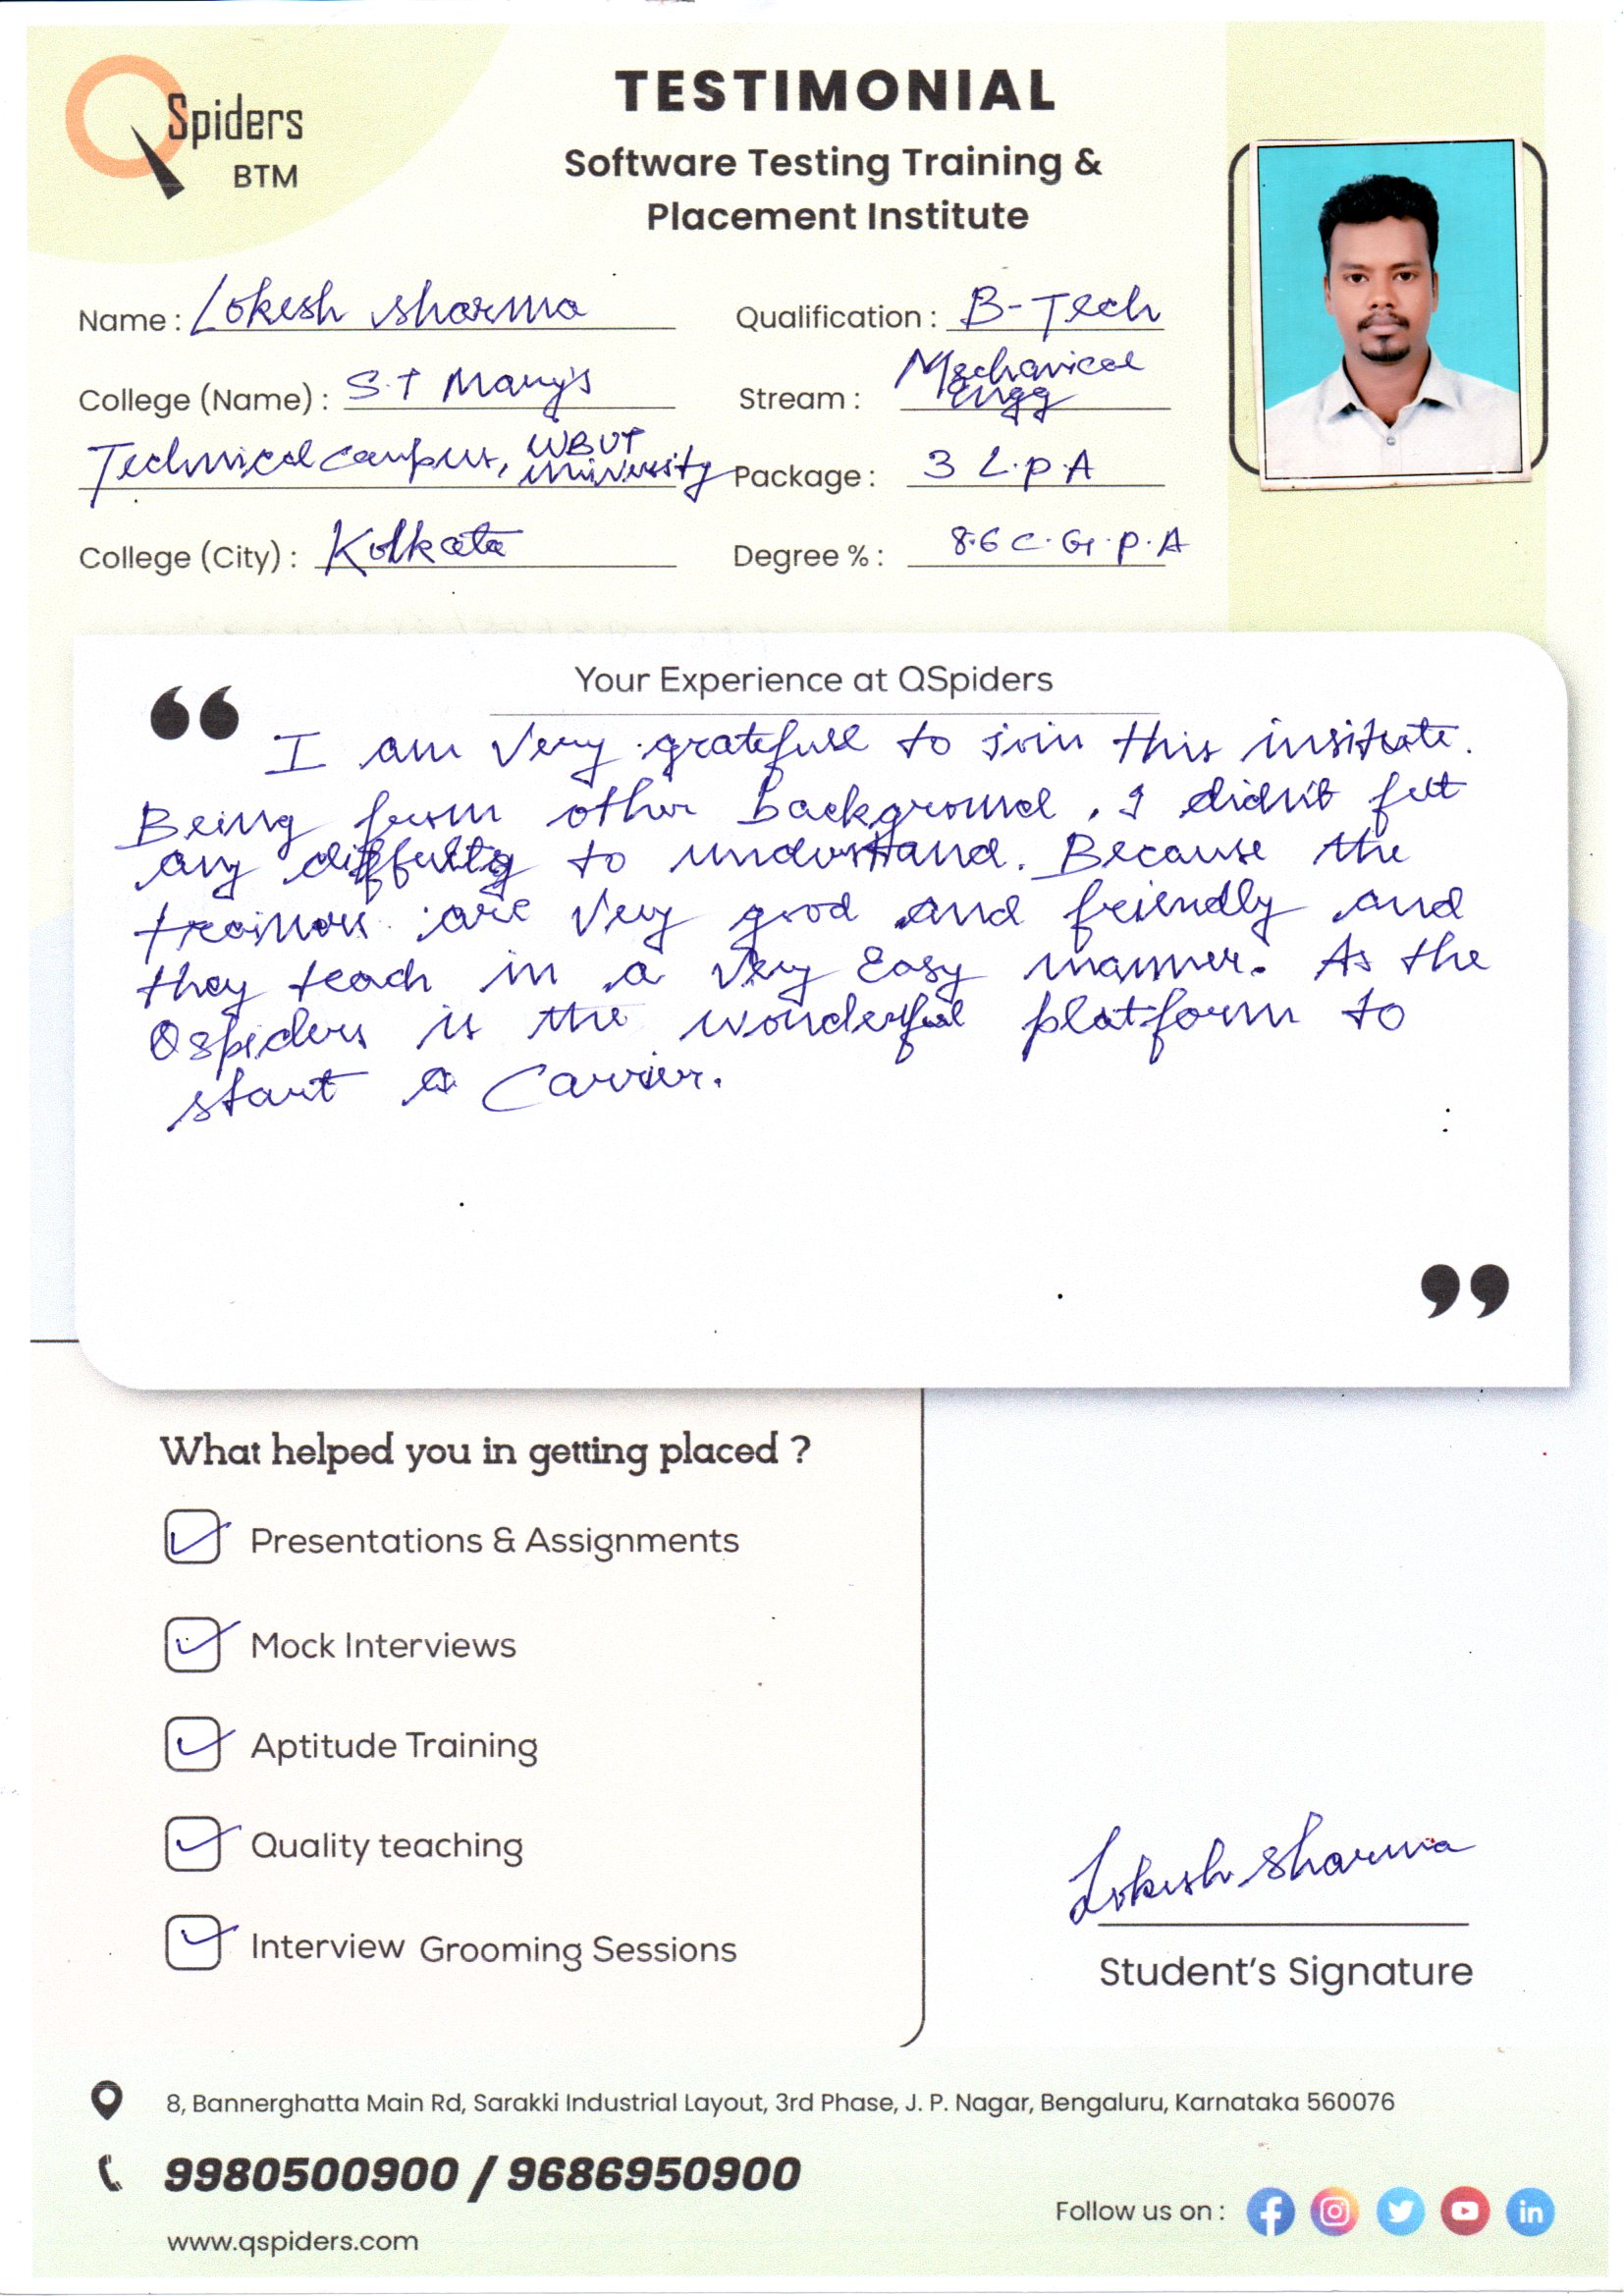 QSpiders
BTM
TESTIMONIAL
Software Testing Training &
Placement Institute
Name : Lokesh sharma
Qualification : B-Tech
College (Name) : S.T Mary's
Stream : Mechanical
Engg
Technical campus, WBUT
University
Package : 3 L.P.A
College (City) : Kolkata
Degree % : 8.6 C.G.P.A
Your Experience at QSpiders
“ I am very grateful to join this insitute.
Being from other background, I didn't felt
any diffulty to understand. Because the
trainors are very good and friendly and
they teach in a very Easy manner. As the
Qspiders is the wonderful platform to
start a Carrier.
”
What helped you in getting placed ?
Presentations & Assignments
Mock Interviews
Aptitude Training
Quality teaching
Interview Grooming Sessions
Lokesh Sharma
Student's Signature
8, Bannerghatta Main Rd, Sarakki Industrial Layout, 3rd Phase, J. P. Nagar, Bengaluru, Karnataka 560076
9980500900 / 9686950900
www.qspiders.com
Follow us on :